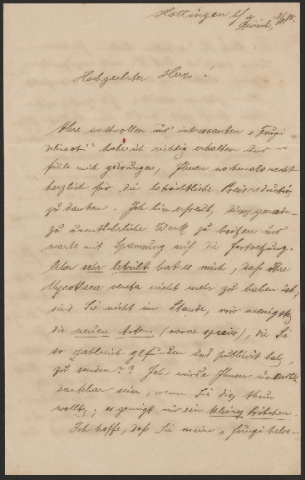 Hottingen b/
Zürich,
Hochgeehrter Herr!
Ihre werthvollen und interessanten „Fungi
habe ich richtig erhalten und
fühle mich gedrungen, Ihnen nochmals recht
herzlich für die beträchtliche Preisreduction
zu danken. Ich bin erfreut, dieses gerade-
zu unentbehrliche Werk zu besitzen und
warte mit Spannung auf die Fortsetzung.
Aber sehr betrübt hat es mich, daß Ihre
Mycotheca nicht mehr zu haben ist,
sind Sie nicht im Stande, mir wenigstens
die neuen Arten (novae species), die Sie
so zahlreich gefunden und publicirt haben,
zu senden?? Ich würde Ihnen
dankbar sein, wenn Sie dies thun
wollten; es genügt mir ein kleines Pröbchen.
Ich hoffe, daß Sie meine „Fungi helve-